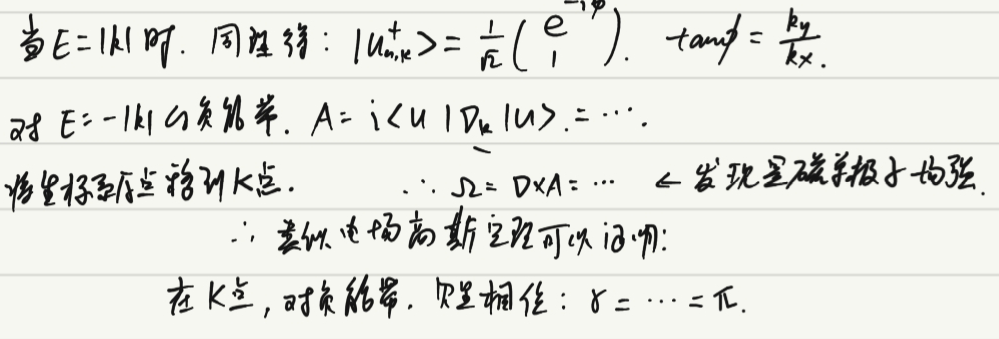 当 E=|k| 时. 同理得: |u⁺ₙ,ₖ> = 1/√2 ( e^{-iφ} 1 ). tanφ = ky/kx.
对 E=-|k| 的负能带. A= i<u|∇ₖ|u>.= ⋯.
将坐标原点移到K点. ∴ Ω= ∇×A= ⋯ ← 发现是磁单极子场强.
∴ 类似电场高斯定理可以证明:
在 K点, 对负能带. 贝里相位: γ = ⋯ = π.